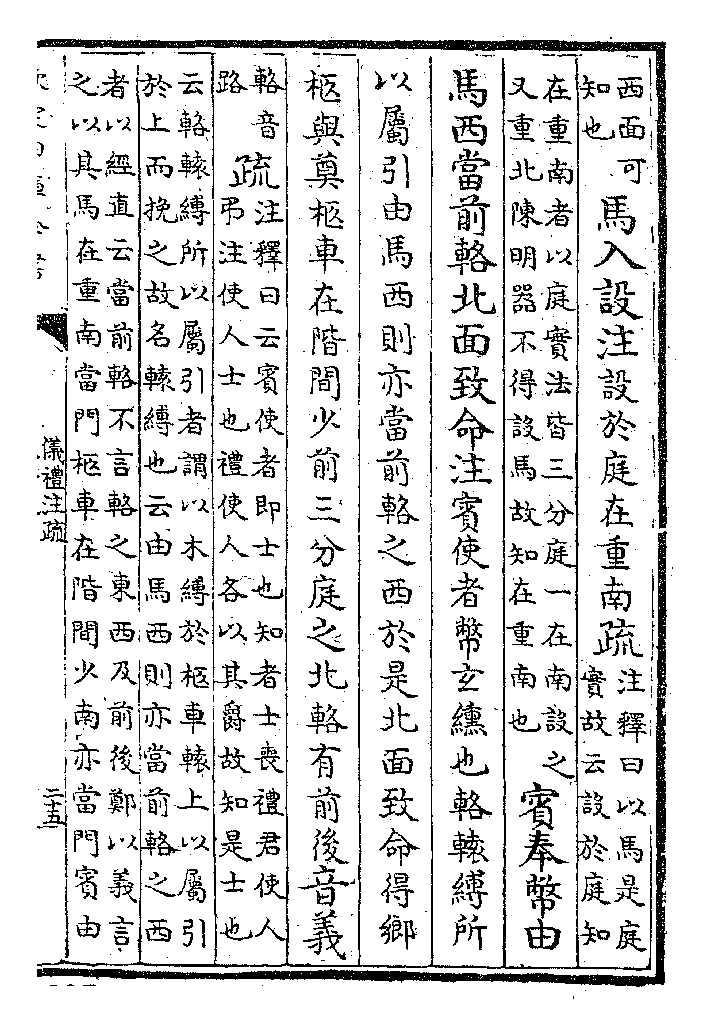 西面可
知也
馬入設注設於庭在重南疏
注釋曰以馬是庭
實故云設於庭知
在重南者以庭實法皆三分庭一在南設之
又重北陳明器不得設馬故知在重南也
賓奉幣由
馬西當前輅北面致命注賓使者幣玄纁也輅轅縛所
以屬引由馬西則亦當前輅之西於是北面致命得鄉
柩與奠柩車在階間少前三分庭之北輅有前後音義
輅音
路
疏
注釋曰云賓使者即士也知者士喪禮君使人
弔注使人士也禮使人各以其爵故知是士也
云輅轅縛所以屬引者謂以木縛於柩車轅上以屬引
於上而挽之故名轅縛也云由馬西則亦當前輅之西
者以經直云當前輅不言輅之東西及前後鄭以義言
之以其馬在重南當門柩車在階間少南亦當門賓由
儀禮注疏
二十五